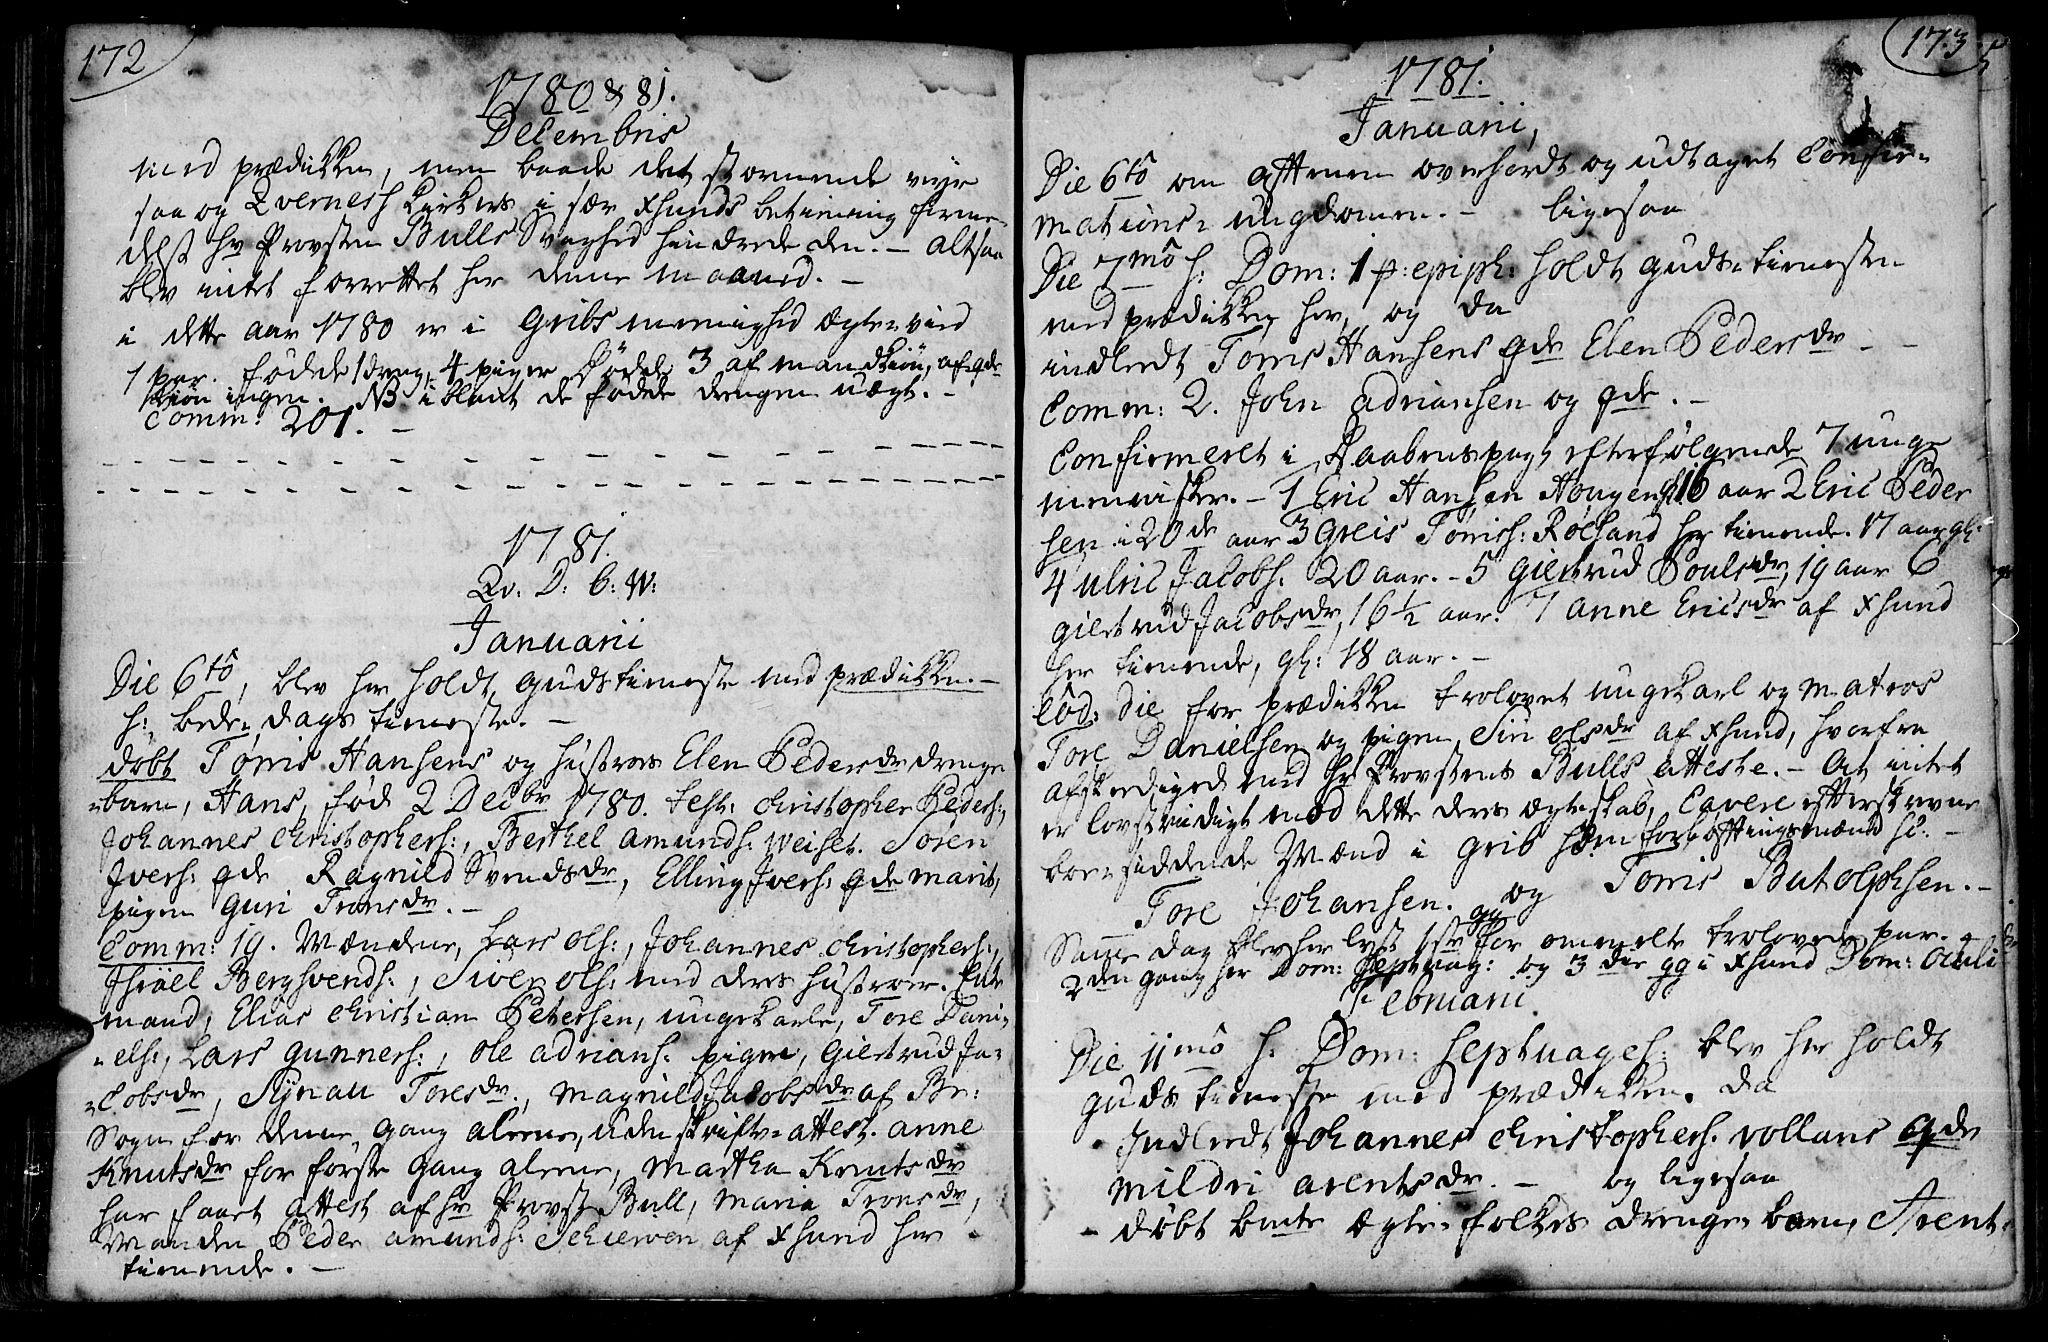 172
1780 & 81.
Decembris
med prædikken, men baade det stormende veyr
saa og Qvernesh kirkes i sær xhunds betiening forme-
delst hr Provsten Bulls Svaghed hindrede den. – altsaa
blev intet forrettet her denne maaned. –
i dette aar 1780 er i Gribs meenighed ægte-viid
1 par. fødde 1 dreng, 4 piger Døde 3 af mandkiøn, af qde
kiøn ingen. NB iblant de fødde drengen uægt. –
Comm: 201. –
1781.
Qv: D: B: W:
Januarii
Die 6tô, blev her holdt Gudstieneste med prædikken. –
h: bede-dags tieneste. –
døbt Tønis Hansens og hustrues Elen Pedersdr drenge
-barn, Hans, fød 2 Decbr 1780. test: Christopher Peders:,
Johannes Christophers:, Berthel amunds: Weiset. Søren
Jvers: qde Ragnild Svendsdr, Elling Jvers: qde marit,
pigen Guri Tronsdr. –
Comm: 19. Mændene, Lars Ols:, Johannes Christophers:,
Jsrael Bergsvends:, Siver Ols: med deres hustruer. Enke
mand, Elias Christian Petersen, ungekarle, Tore Dani-
-els:, Lars Gunners:, Ole adrians: pigen, Giertrud Ja-
-cobsdr, Synau Toresdr., Magnild Jacobsdr af Br:
Sogn for denne Gang alene, uden skrifte-attest. anne
Knutsdr for første Gang alene, Martha Knutsdr
har faaet attest af hr Provst Bull, Maria Tronsdr,
Manden Peder amunds: Schierven af xhund her
tienende. –
173
1781.
Januarii,
Die 6tô om afftenen overhørdt og udtaget Confir-
mations-ungdommen. – ligesaa
Die 7mô h: Dom: 1 p: epiph: holdt Guds-tienesten
med prædikken her, og da
indledt Tønis Hansens qde Elen Pedersdr –
Comm: 2. John adriansen og qde. –
Confirmeret i Daabens pagt efterfølgende 7 unge
mennisker. – 1 Eric Hansen Hougen gl: 16 aar 2 Eric Peder
sen i 20de aar 3 Greis Tønish: Røesand her tienende 17 aar gl:
4 Ulric Jacobs: 20 aar. – 5 Giertrud Poulsdr, 19 aar 6
Giertrud Jacobsdr, 16½ aar. 7 anne Ericsdr af xhund
her tienende, gl: 18 aar. –
Eod: die for prædikken trolovet ungekarl og matros
Tore Danielsen og pigen, Siri Olsdr af xhund, hvorfra
afskediged med hr Provstens Bulls atteste. – At intet
er lovstridigt mod dette deres ægteskab, Cavere efterskrevne
boe-siddende Mænd i Grib som forløftingsmænd sc: –
Tore Johansen. og Tønis Butolphsen. –
Samme dag blev her lyst 1ste gg for ommelte trolovede par. –
2den gang her Dom: Septuag: og 3die gg i xhund Dom: Oculi
Februarii.
Die 11mô h: Dom: Septuages: blev her holdt
Guds tieneste med prædikken. Da
Indledt Johannes Christophers: vollans qde
Mildri arentsdr. – og ligesaa
– døbt bmte Ægte-folkes drenge barn, Arent.